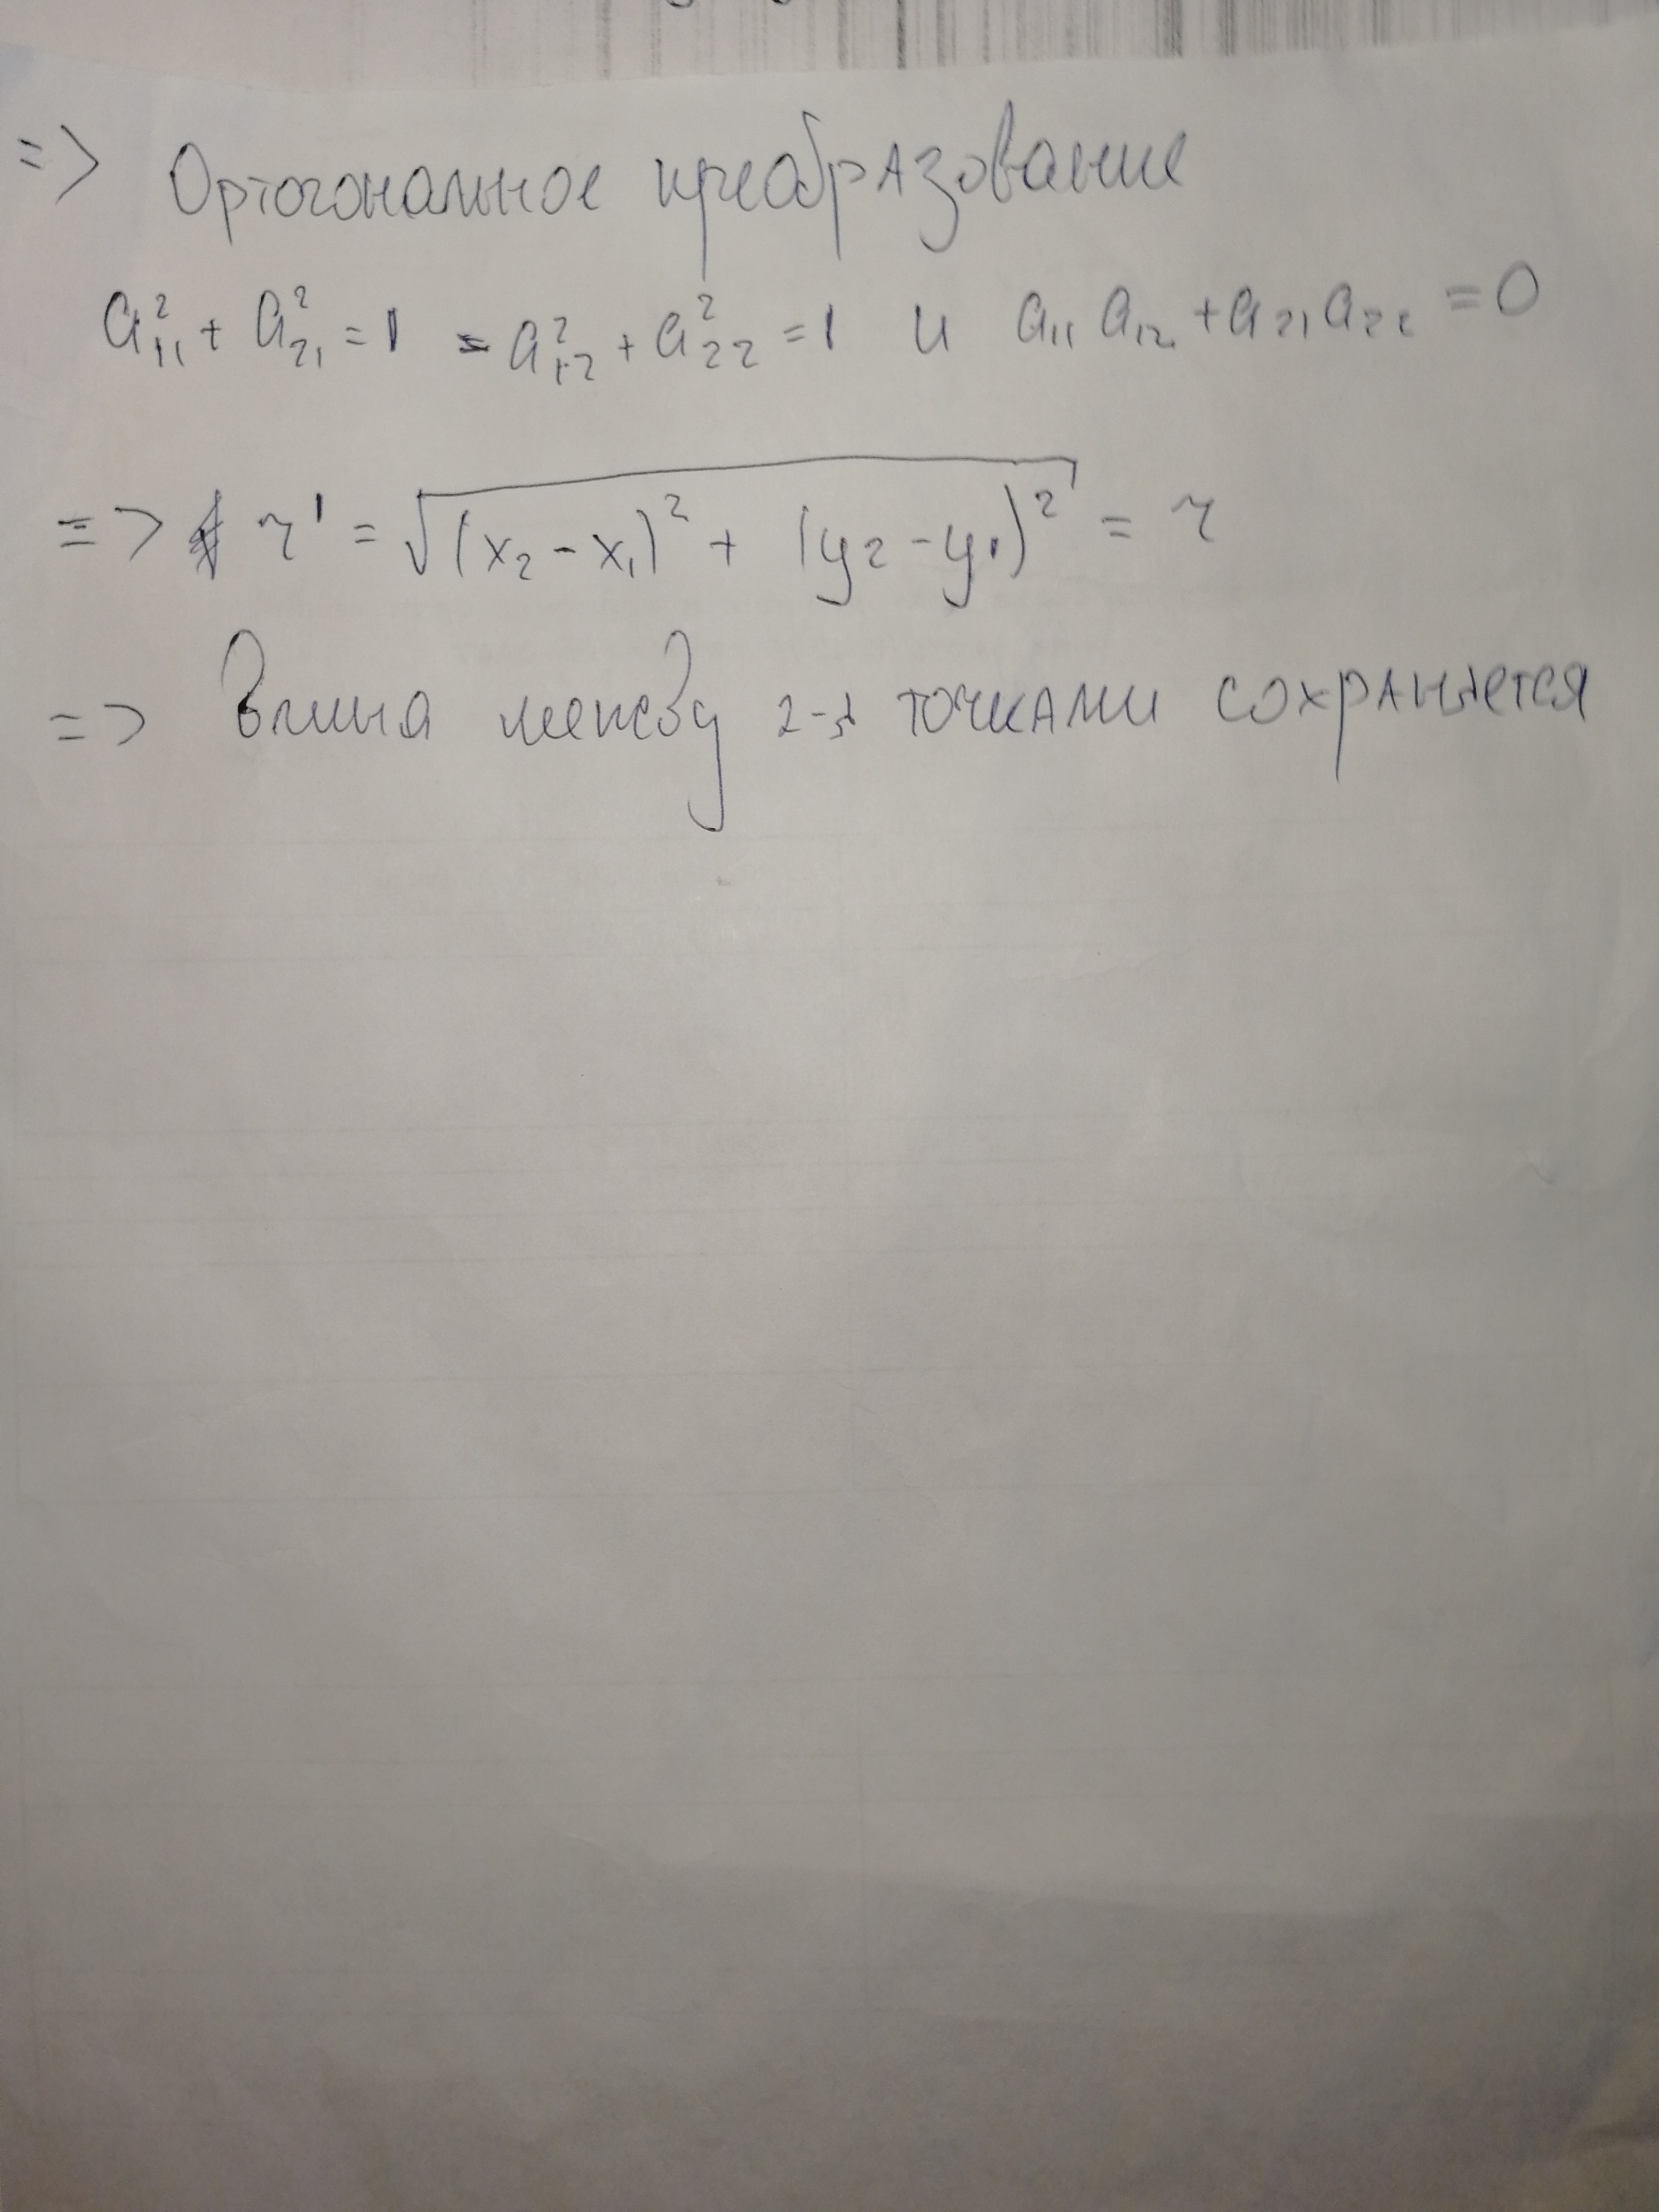 => Ортогональное преобразование
a₁₁² + a₂₁² = 1 = a₁₂² + a₂₂² = 1 и a₁₁ a₁₂ + a₂₁ a₂₂ = 0
=> r' = √((x₂ - x₁)² + (y₂ - y₁)²) = r
=> Длина между 2-я точками сохраняется